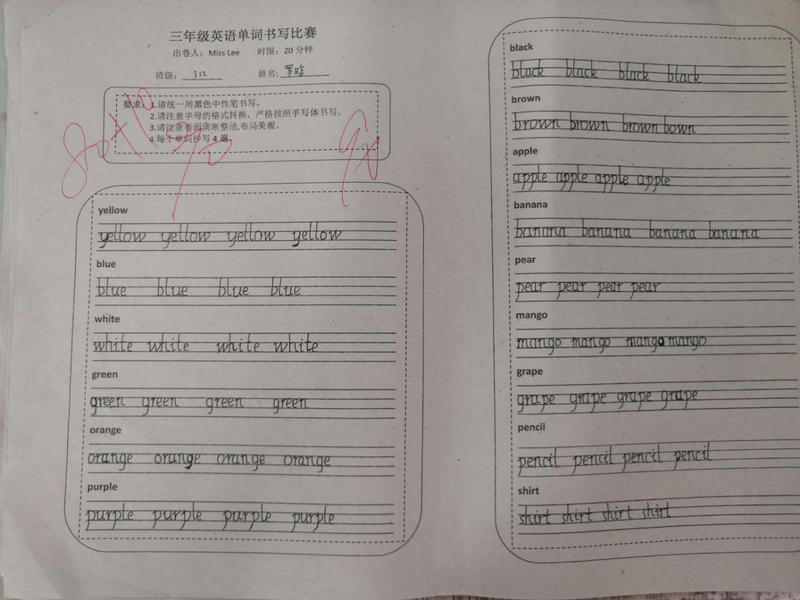 三年级英语单词书写比赛
出卷人：Miss Lee 时限：20分钟
班级： 312 姓名: 罗晗
要求：1.请统一用黑色中性笔书写。
2.请注意字母的格式转换，严格按照手写体书写。
3.请注意卷面清晰整洁,布局美观。
4.每个单词抄写4遍。
80+10
90
yellow
yellow yellow yellow yellow
blue
blue blue blue blue
white
white white white white
green
green green green green
orange
orange orange orange orange
purple
purple purple purple purple
black
black black black black
brown
brown brown brown bown
apple
apple apple apple apple
banana
banana banana banana banana
pear
pear pear pear pear
mango
mango mango mango mango
grape
grape grape grape grape
pencil
pencil pencil pencil pencil
shirt
shirt shirt shirt shirt